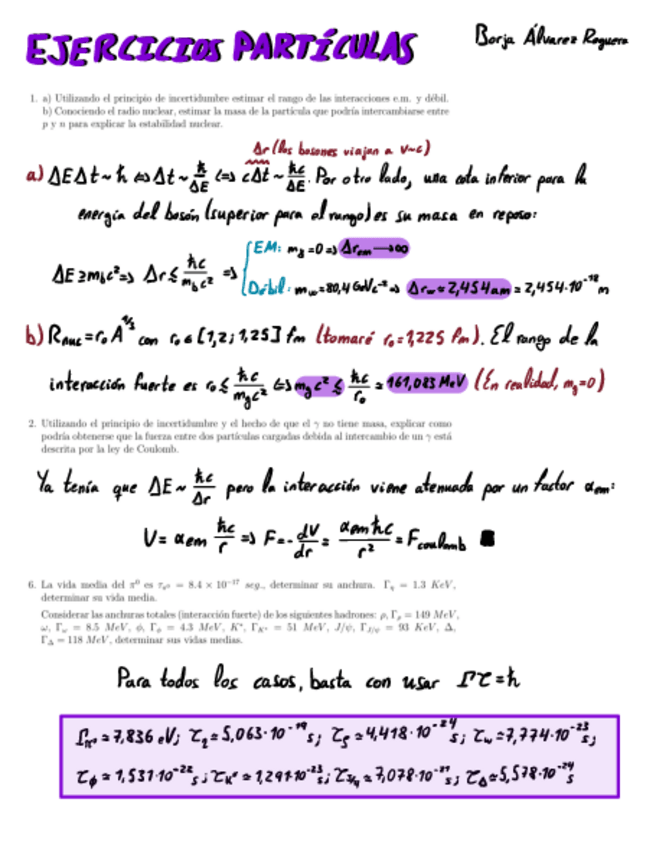 EJERCICIOS PARTÍCULAS
Borja Álvarez Roguera
1. a) Utilizando el principio de incertidumbre estimar el rango de las interacciones e.m. y débil.
b) Conociendo el radio nuclear, estimar la masa de la partícula que podría intercambiarse entre
p y n para explicar la estabilidad nuclear.
Δr (los bosones viajan a v~c)
a) ΔEΔt~ħ ⇔ Δt~ħ/ΔE ⇔ cΔt~ħc/ΔE. Por otro lado, una cota inferior para la
energía del bosón (superior para el rango) es su masa en reposo:
EM: m_γ=0 ⇒ Δr_em ⟶ ∞
ΔE ≥ m_b c² ⇒ Δr ≤ ħc/m_b c² ⇒
Débil: m_w=80,4 GeVc⁻² ⇒ Δr_w≈2,454am = 2,454·10⁻¹⁸ m
b) R_nuc=r₀A^1/3 con r₀∈[1,2; 1,25] fm (tomaré r₀=1,225 fm). El rango de la
interacción fuerte es r₀ ≤ ħc/m_g c² ⇔ m_g c² ≤ ħc/r₀ ≈ 161,083 MeV (En realidad, m_g=0)
2. Utilizando el principio de incertidumbre y el hecho de que el γ no tiene masa, explicar como
podría obtenerse que la fuerza entre dos partículas cargadas debida al intercambio de un γ está
descrita por la ley de Coulomb.
Ya tenía que ΔE~ħc/Δr pero la interacción viene atenuada por un factor α_em:
V=α_em ħc/r ⇒ F=-dV/dr = α_em ħc/r² = F_coulomb ■
6. La vida media del π⁰ es τ_π⁰ = 8.4 × 10⁻¹⁷ seg., determinar su anchura. Γ_η = 1.3 KeV,
determinar su vida media.
Considerar las anchuras totales (interacción fuerte) de los siguientes hadrones: ρ, Γ_ρ = 149 MeV,
ω, Γ_ω = 8.5 MeV, ϕ, Γ_ϕ = 4.3 MeV, K*, Γ_K* = 51 MeV, J/ψ, Γ_J/ψ = 93 KeV, Δ,
Γ_Δ = 118 MeV, determinar sus vidas medias.
Para todos los casos, basta con usar Γτ=ħ
Γ_π⁰≈7,836 eV; τ_η≈5,063·10⁻¹⁹ s; τ_ρ≈4,418·10⁻²⁴ s; τ_ω≈7,774·10⁻²³ s;
τ_ϕ≈1,531·10⁻²² s; τ_K*≈1,291·10⁻²³ s; τ_J/ψ≈7,078·10⁻²¹ s; τ_Δ≈5,578·10⁻²⁴ s